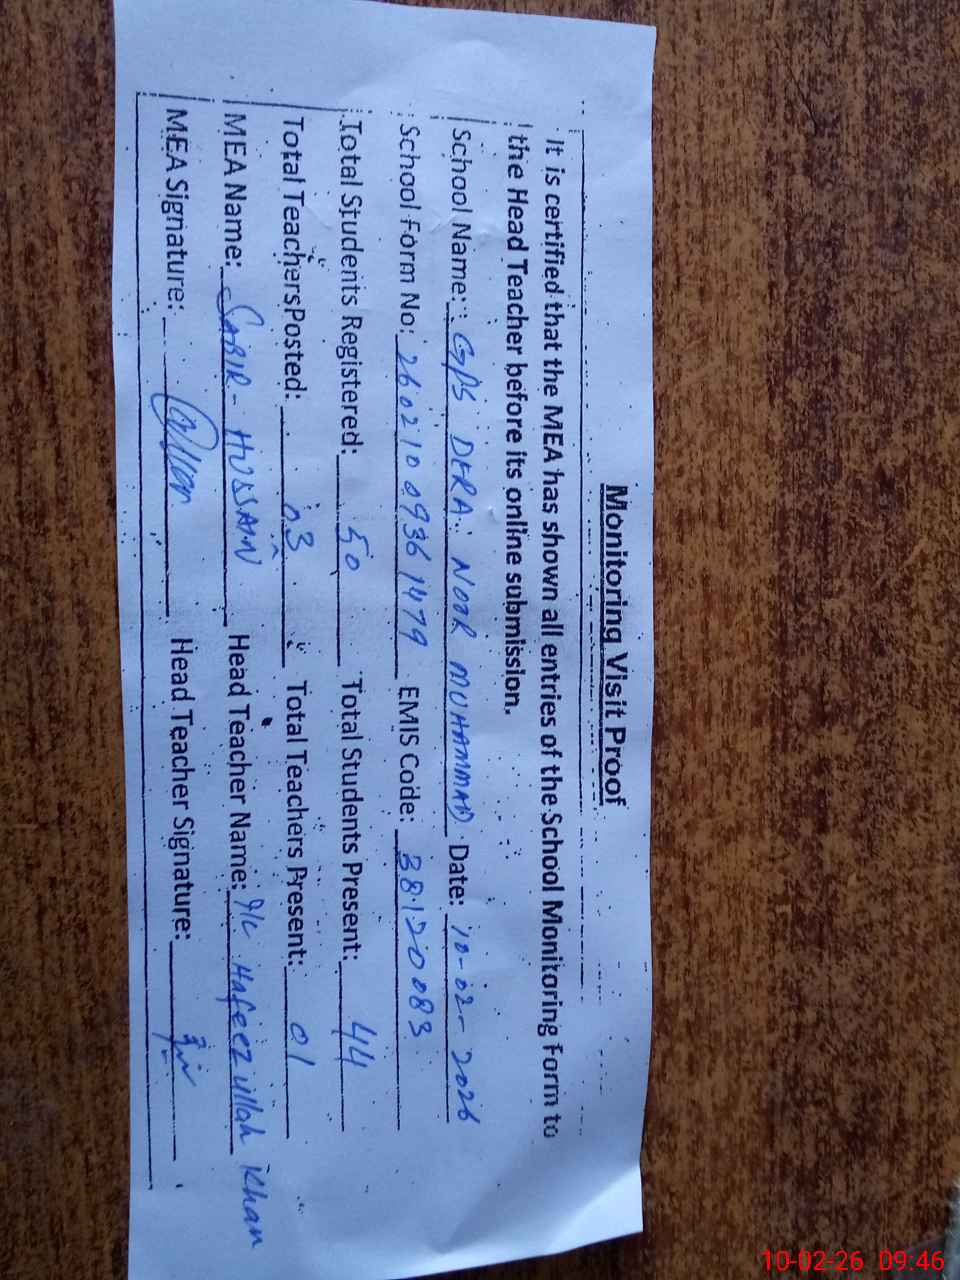 Monitoring Visit Proof
It is certified that the MEA has shown all entries of the School Monitoring Form to
the Head Teacher before its online submission.
School Name: GPS DERA NOOR MUHAMMAD Date: 10-02-2026
School Form No: 260210 0936 1479 EMIS Code: 38120083
Total Students Registered: 50 Total Students Present: 44
Total Teachers Posted: 03 Total Teachers Present: 01
MEA Name: SABIR - HUSSAIN Head Teacher Name: I/C Hafeez ullah Khan
MEA Signature: Head Teacher Signature:
10-02-26 09:46